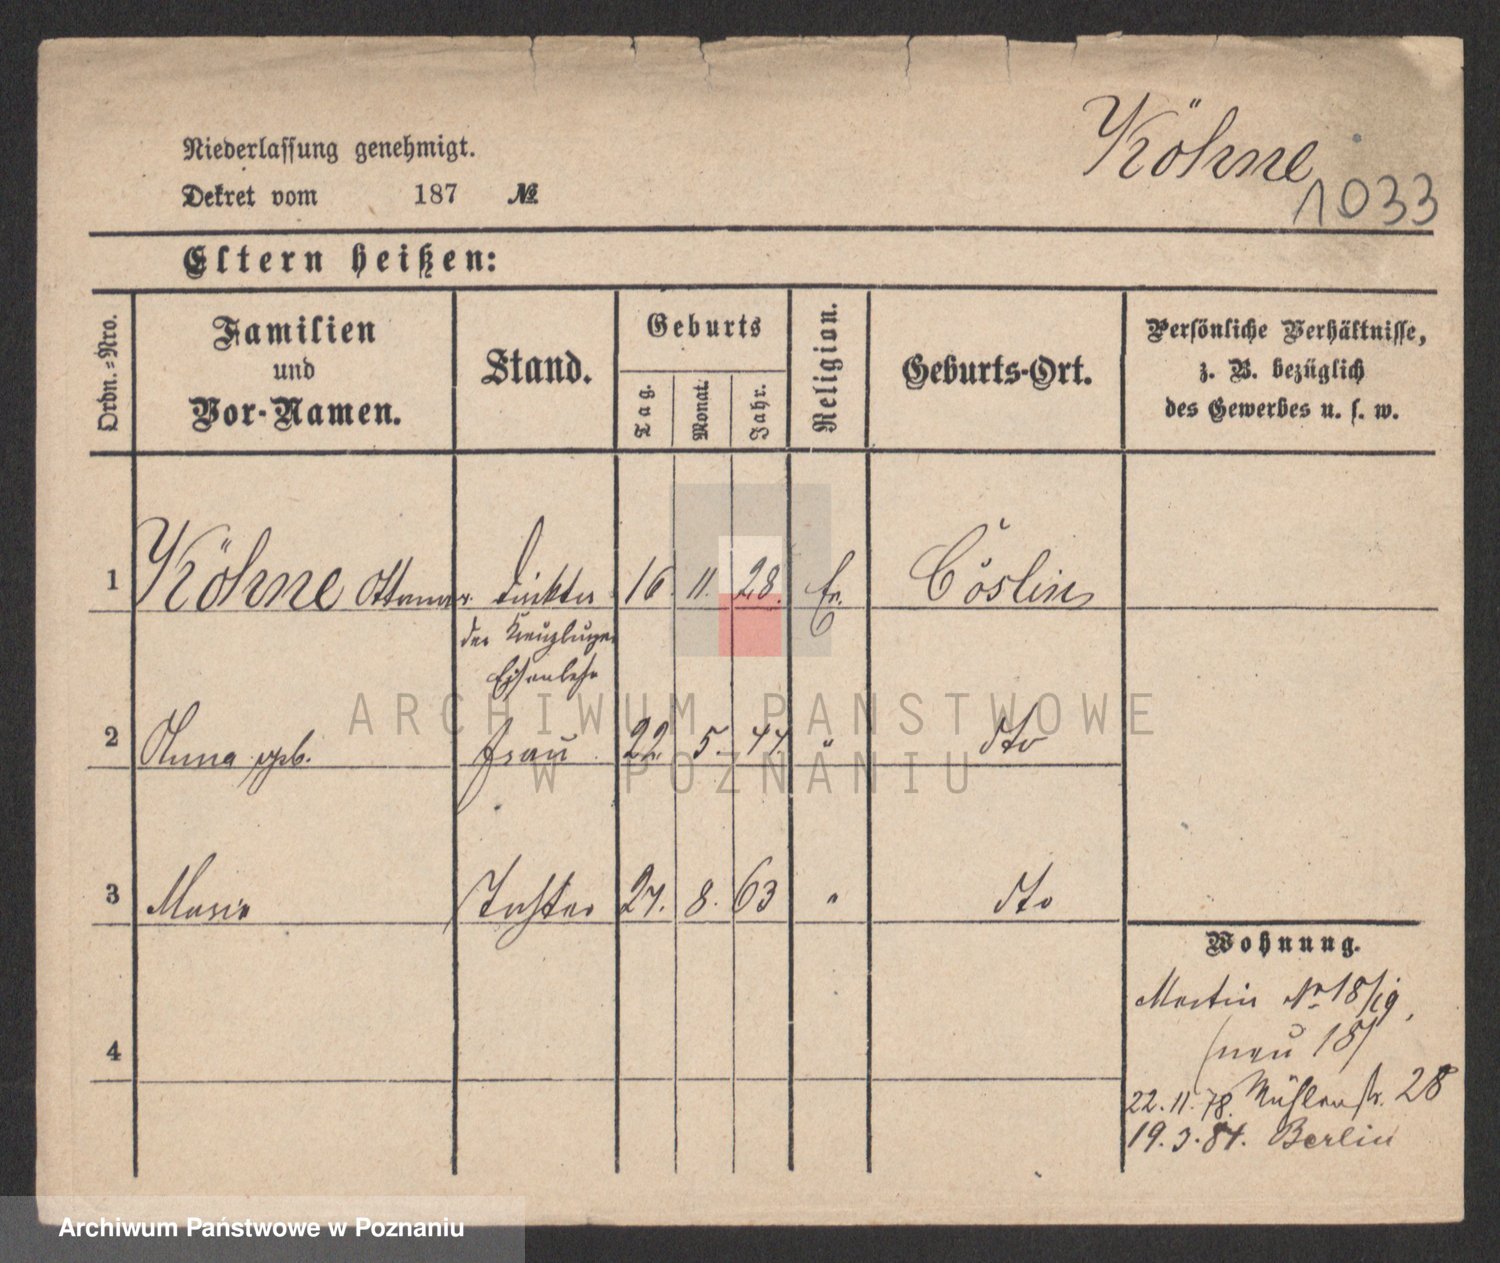 Köhne
1033
Niederlassung genehmigt.
Dekret vom 187 №
Eltern heißen:
Ordn.=Nro.
Familien
und
Vor-Namen.
Stand.
Geburts
Tag.
Monat.
Jahr.
Religion.
Geburts-Ort.
Persönliche Verhältnisse,
z. B. bezüglich
des Gewerbes u. s. w.
1 Köhne Ottomar. Direktor 16 11. 28. Ev. Cöslin
der Kreuzburger
Eisenbahn
2 Anna geb. Frau 22. 5. 44. " dto
3 Marie Tochter 27. 8. 63 " dto
Wohnung.
Martin No 18/19,
(neu 18)
4
22. 11. 78. Mühlenstr. 28
19. 3. 84. Berlin
ARCHIWUM PAŃSTWOWE
W POZNANIU
Archiwum Państwowe w Poznaniu